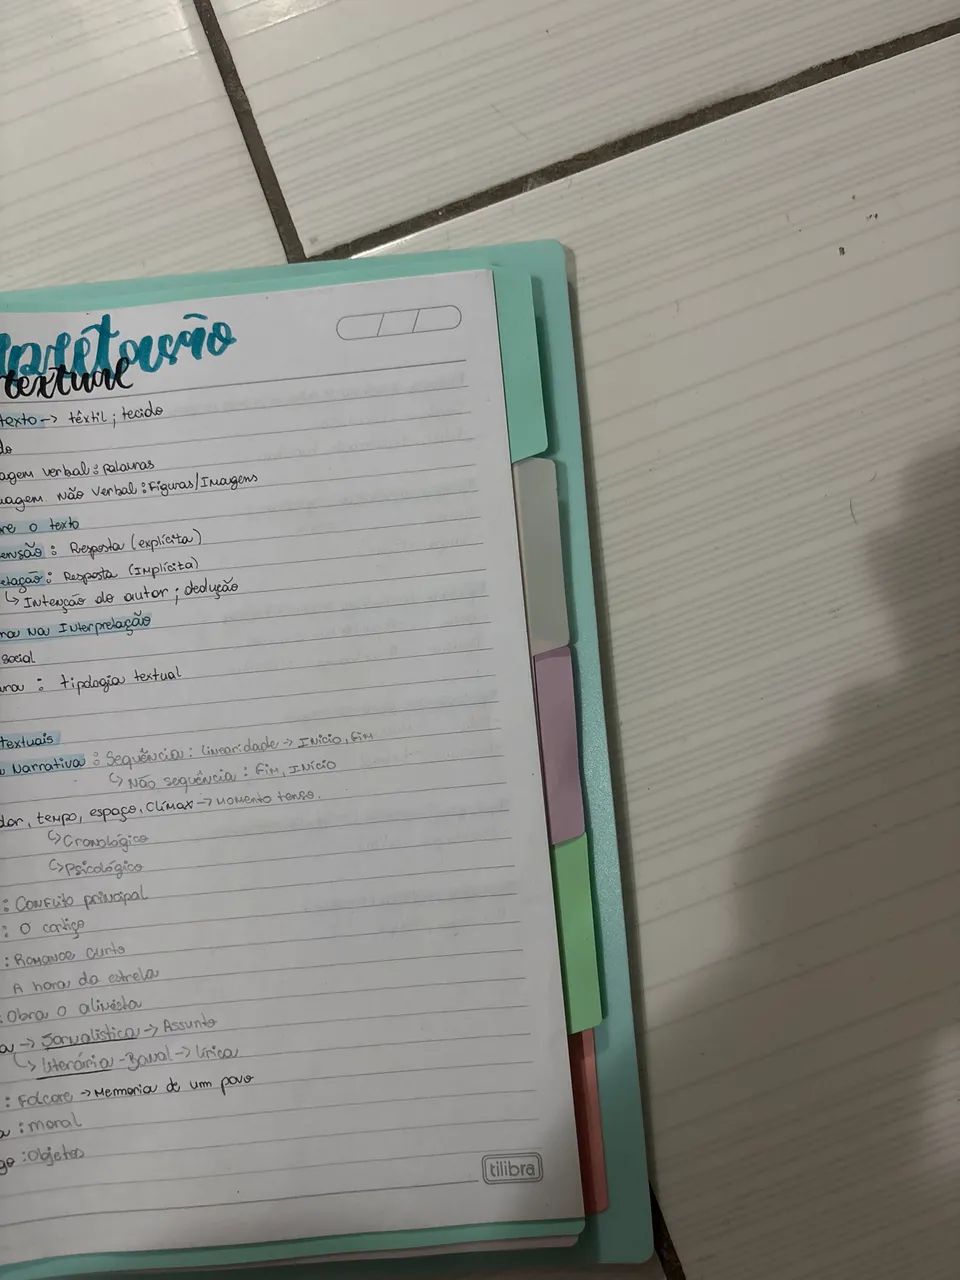 pretação
textual
texto -> têxtil ; tecido
do
agem verbal : palavras
uagem não verbal : Figuras/Imagens
re o texto
ensão : Resposta (explícita)
etação : Resposta (Implícita)
↳ Intenção do autor ; dedução
na Interpretação
social
: tipologia textual
textuais
Narrativa : Sequência : linearidade -> Início, fim
↳ Não sequência : Fim, Início
dor, tempo, espaço, Clímax -> Momento tenso.
↳ Cronológico
↳ Psicológico
: Conflito principal
: O cortiço
: Romance curto
A hora da estrela
: Obra o alinésta
a -> Jornalística -> Assunto
↳ literária - Banal -> lírica
: Folcore -> Memoria de um povo
a : moral
go : Objetos
tilibra